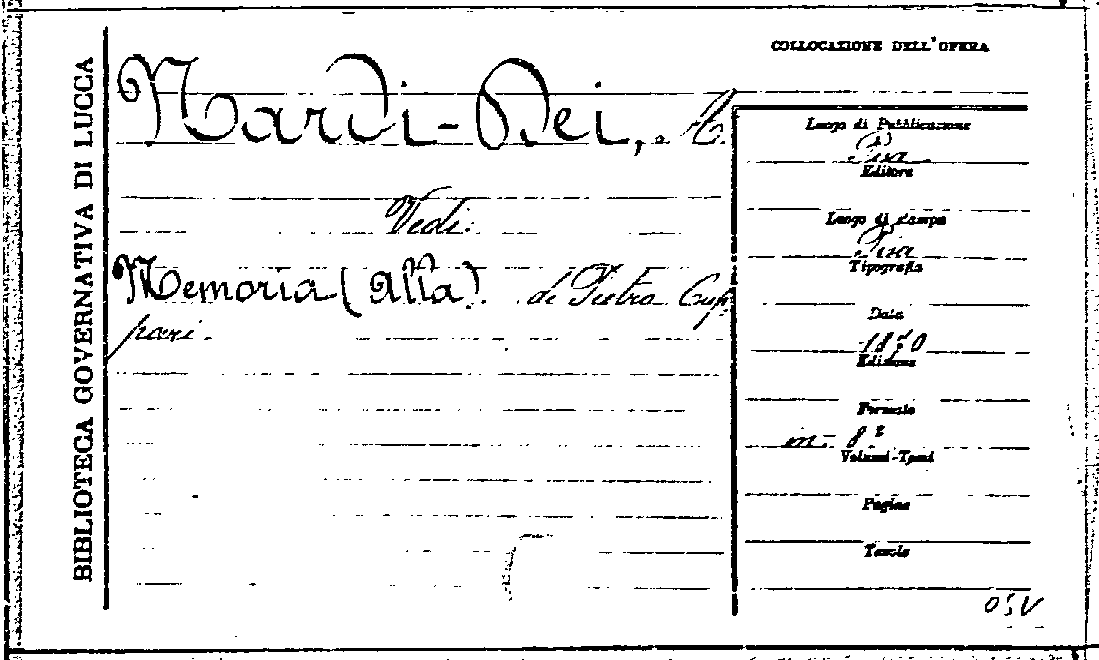 BIBLIOTECA GOVERNATIVA DI LUCCA
Nardi-Dei,
Vedi:
Memoria (alla) di Pietro Cup-
pari.
COLLOCAZIONE DELL'OPERA
Luogo di Pubblicazione
Pisa
Editore
Luogo di stampa
Pisa
Tipografia
Data
1870
Edizione
Formato
in-8º
Volumi-Tomi
Pagine
Tavole